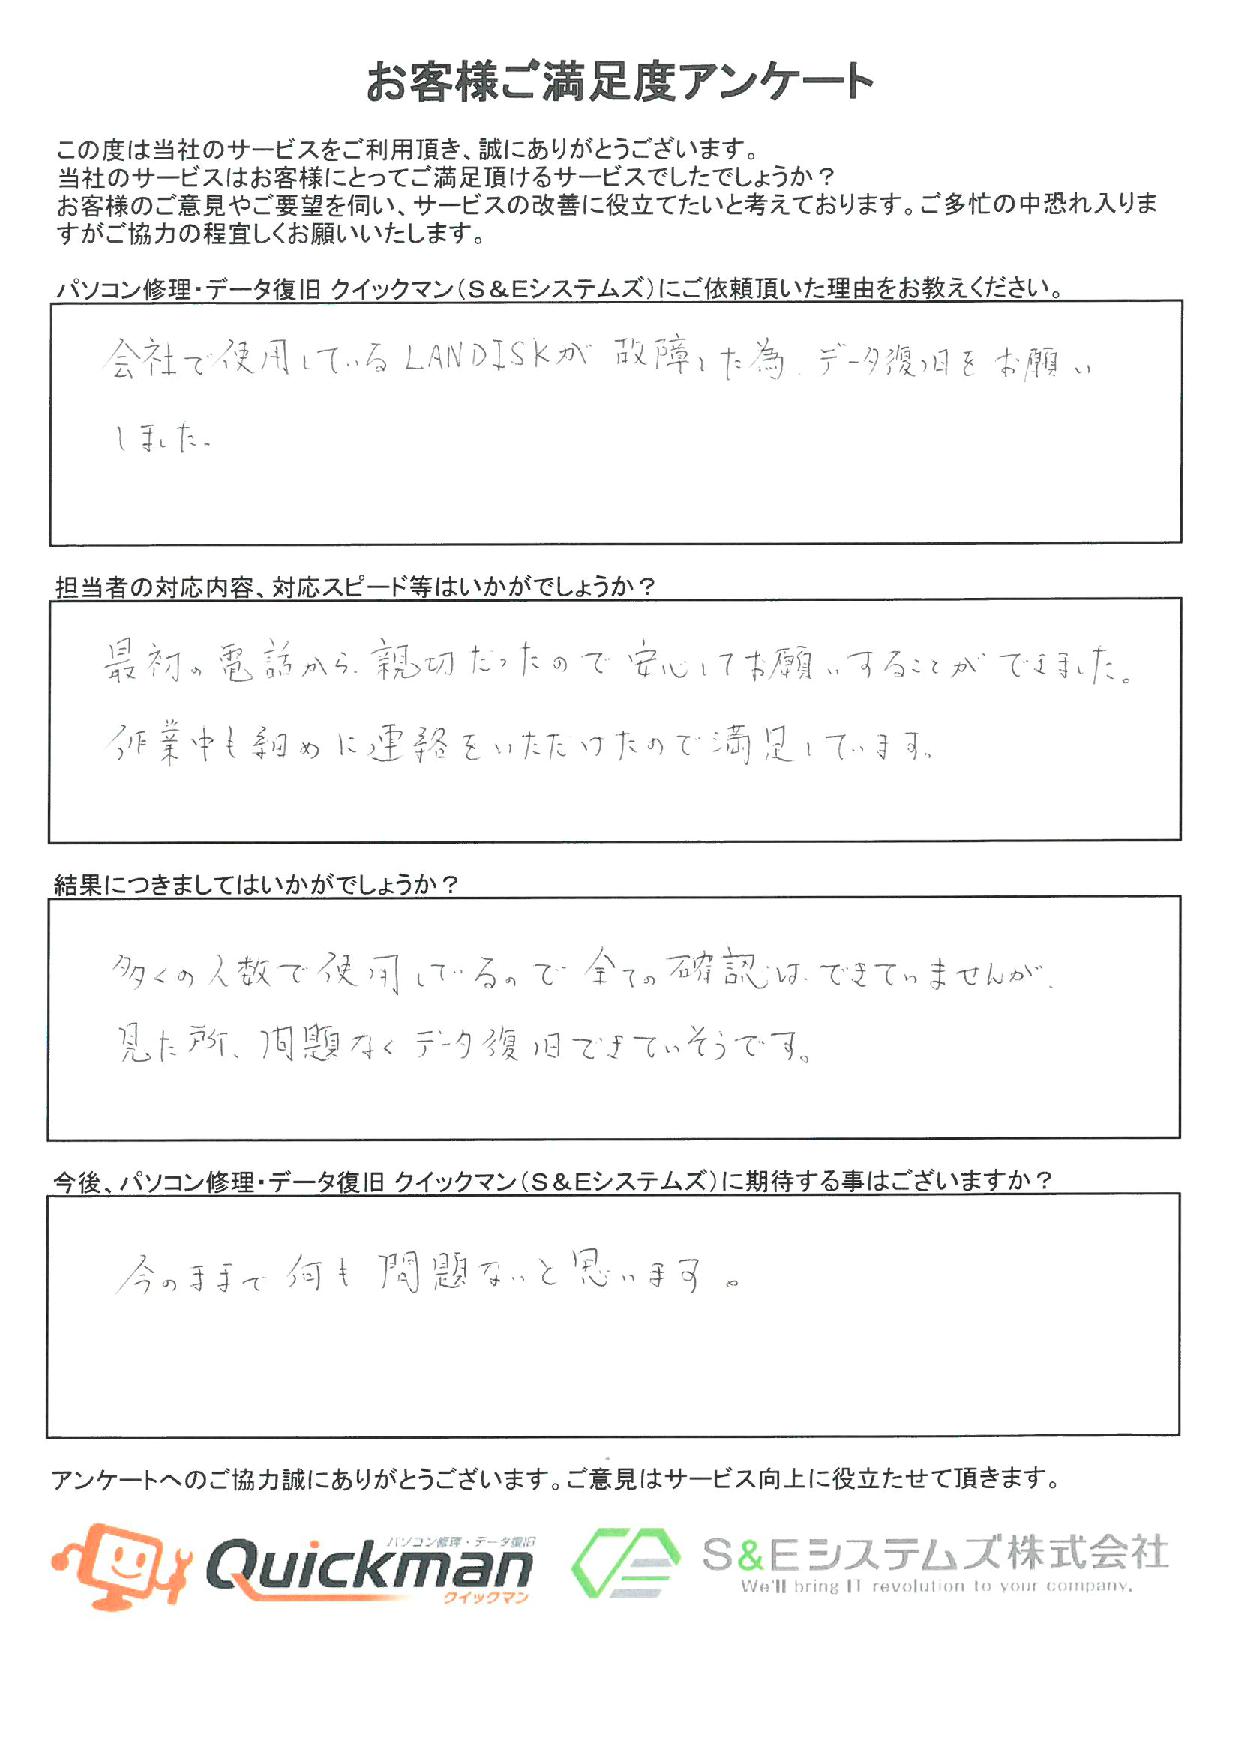 お客様ご満足度アンケート
この度は当社のサービスをご利用頂き、誠にありがとうございます。
当社のサービスはお客様にとってご満足頂けるサービスでしたでしょうか？
お客様のご意見やご要望を伺い、サービスの改善に役立てたいと考えております。ご多忙の中恐れ入りま
すがご協力の程宜しくお願いいたします。
パソコン修理・データ復旧 クイックマン（S＆Eシステムズ）にご依頼頂いた理由をお教えください。
会社で使用しているLANDISKが故障した為、データ復旧をお願い
しました。
担当者の対応内容、対応スピード等はいかがでしょうか？
最初の電話から、親切だったので安心してお願いすることができました。
作業中も細めに連絡をいただけたので満足しています。
結果につきましてはいかがでしょうか？
多くの人数で使用しているので全ての確認はできていませんが、
見た所、問題なくデータ復旧できていそうです。
今後、パソコン修理・データ復旧 クイックマン（S＆Eシステムズ）に期待する事はございますか？
今のままで何も問題ないと思います。
アンケートへのご協力誠にありがとうございます。ご意見はサービス向上に役立たせて頂きます。
パソコン修理・データ復旧
Quickman
クイックマン
S&Eシステムズ株式会社
We'll bring IT revolution to your company.